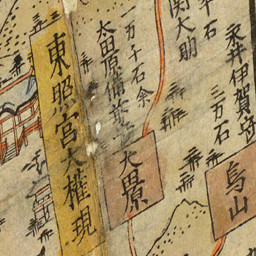 永井伊賀守
三万石
烏山
関大助
千石
一万千石余
太田原備前
大田原
東照宮大権現